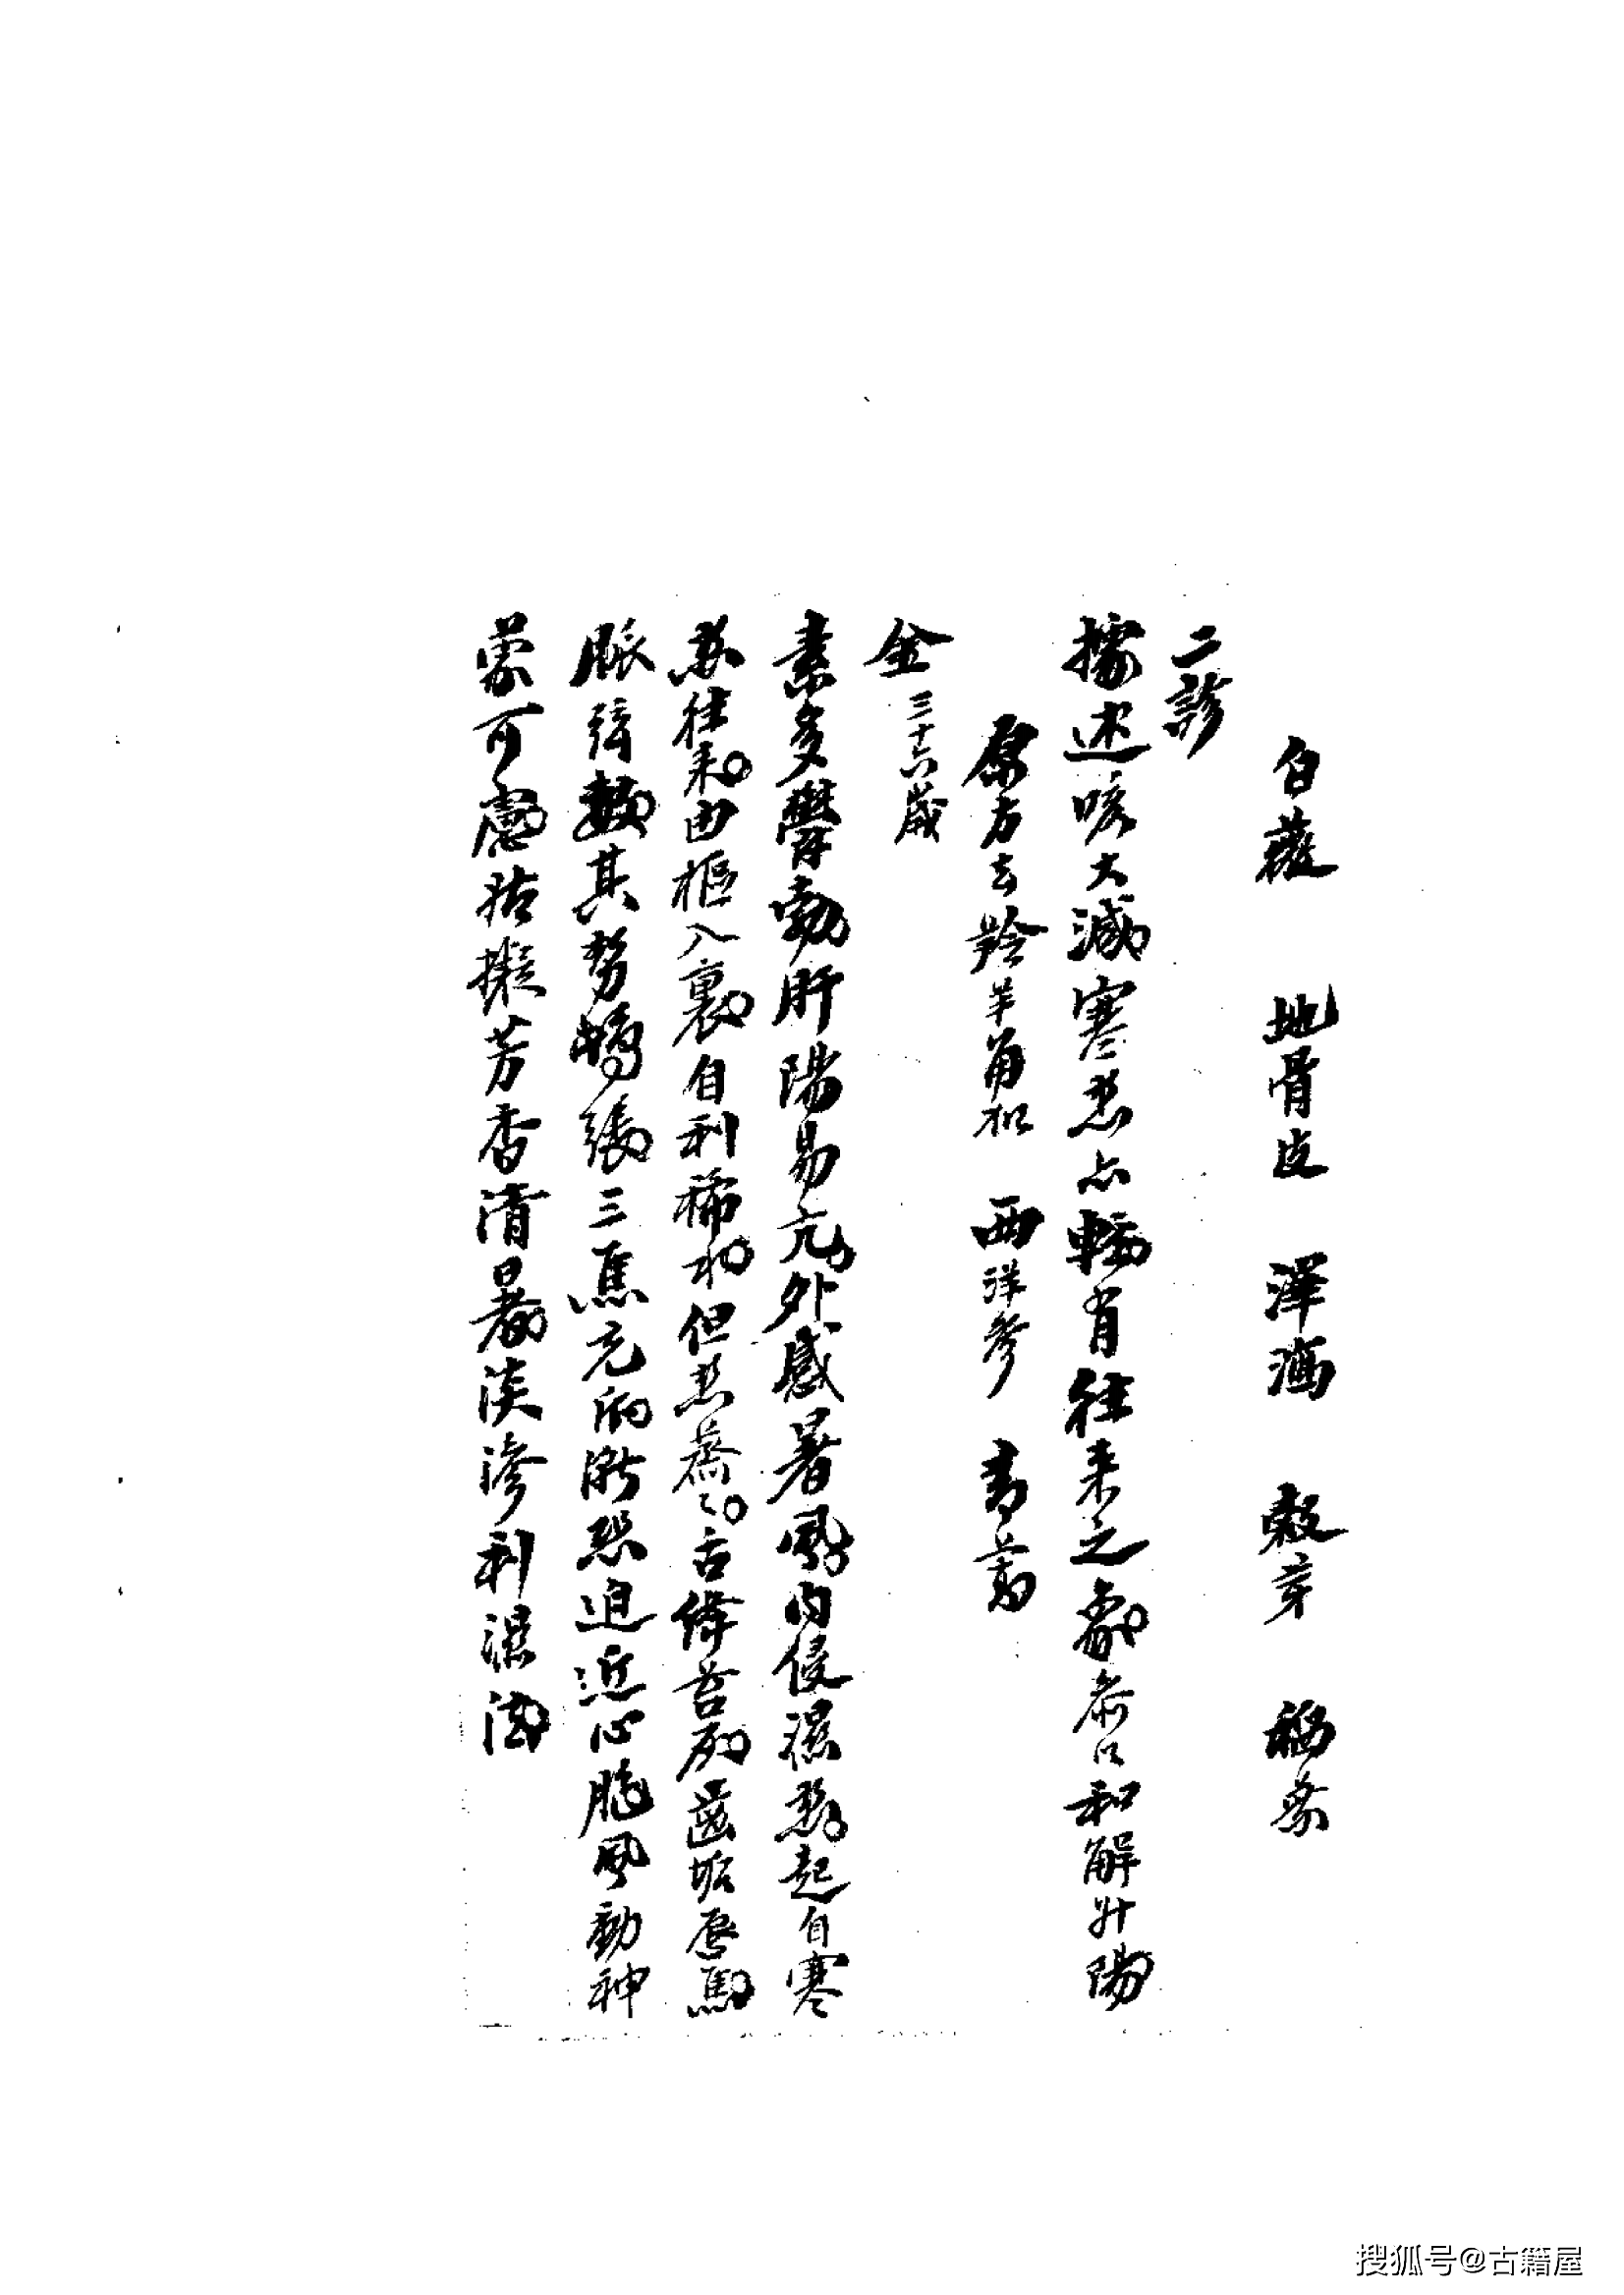 白薇 地骨皮 澤瀉 穀芽 稻叅
二診
據述咳大減寒熱亦輕有往来之象原口和解升陽
原方去羚羊角加 西洋參 青蒿
金 三十六歲
素多鬱勃肝陽易亢外感暑風内侵濕熱起自寒
熱往来由樞入裏自利稀水但熱蒸蒸舌絳苔剥齒垢唇焦
脈弦數其势鴟張三焦充斥漸恐迫近心胞風動神
蒙可慮姑擬芳香清暑淡滲利濕法
搜狐号@古籍屋